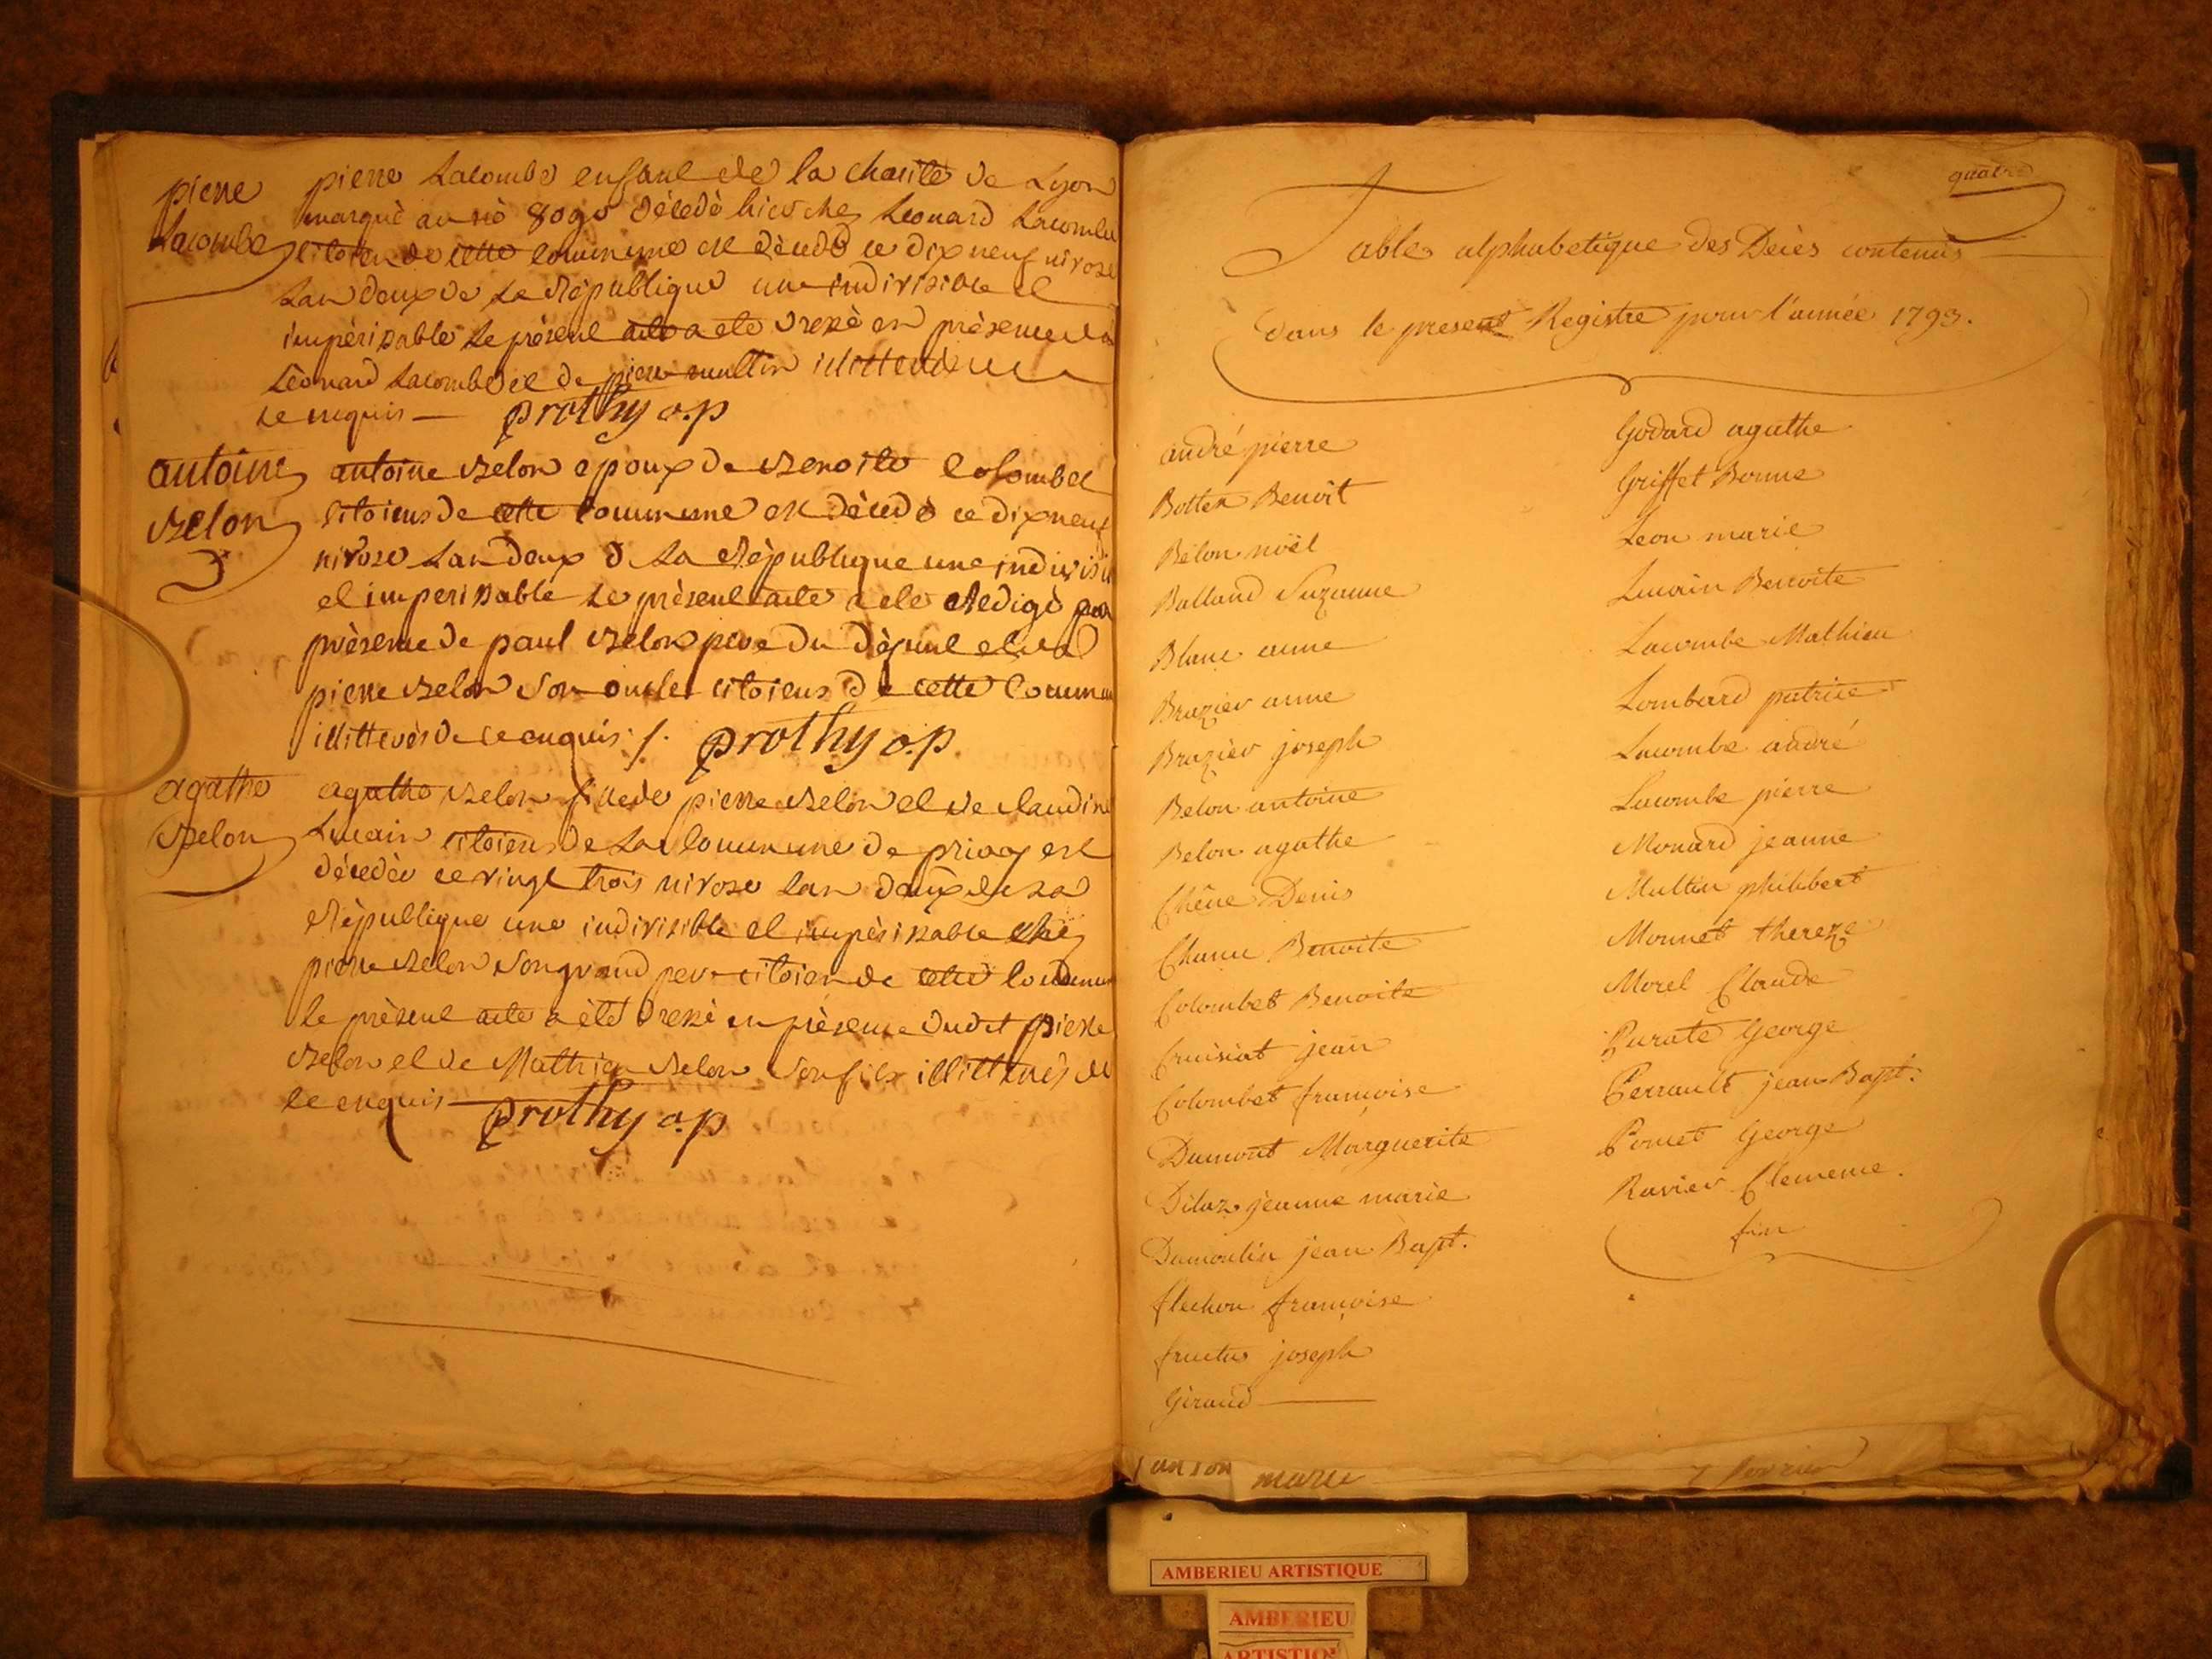 pierre
Lacombe
pierre Lacombe enfant de la charité de Lyon
marqué au nò 8090 décedé hier chez Leonard Lacombe
citoien de cette commune est décédé ce dix neuf nivose
Lan deux de La République une indivisible et
impérisable Le présent acte a eté dressé en présence de
Léonard Lacombe et de pierre multin illitterés
ce enquis — prothy o.p
antoine
Belon
antoine Belon epoux de Benoite Colombet
citoiens de cette Commune est décédé ce dix neuf
nivose Lan deux d La République une indivisi
et imperissable Le présent acte a eté Redigé
présence de paul Belon pere du défunt et de
pierre Belon son oncle citoiens de cette Commun
illitterés de ce enquis ./. prothy o.p.
agathe
Belon
agathe Belon fille de pierre Belon et de claudine
Lucain citoiens de La Commune de priay est
décedée ce vingt trois nivose lan deux de La
République une indivisible et impérissable chez
pierre Belon Son grand pere citoien de cette Commun
le présent acte a èté dressé en présence dudit pierre
Belon et de Mathieu Belon Son fils illitterés de
ce enquis prothy o.p
quatre
Table alphabetique des Décès contenus
dans le present Registre pour l'année 1793.
andré pierre
Botten Benoît
Bélon noël
Balland Suzanne
Blanc anne
Brazier anne
Brazier joseph
Belon antoine
Belon agathe
Chêne Denis
Chanu Benoite
Colombet Benoite
Cruisiat jean
Colombet françoise
Dumont Marguerite
Diloz jeanne marie
Dumoulin jean Bapt.
flechon françoise
fructus joseph
Giraud —
Godard agathe
Griffet Bonne
Leon marie
Lucain Benoite
Lacombe Mathieu
Lombard patrice
Lacombe andré
Lacombe pierre
Monard jeanne
Multin philibert
Monnet thereze
Morel Claude
Purate George
Perrault jean Bapt.
Pomet George
Ravier Clemence.
fin
marie 7 fevrier
AMBERIEU ARTISTIQUE
AMBERIEU
ARTISTIQU